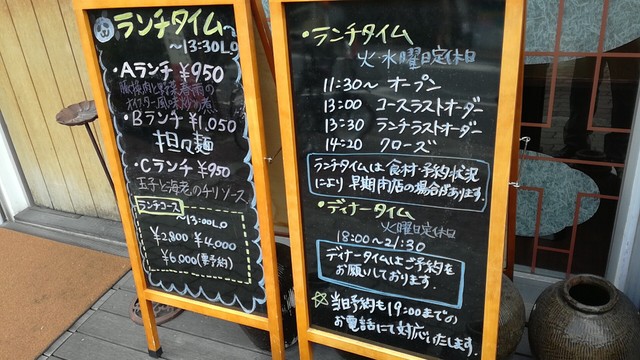 ランチタイム
～13:30LO
・Aランチ ¥950
豚挽肉と野菜春雨の
オイスター風味炒め煮
・Bランチ ¥1,050
担々麺
・Cランチ ¥950
玉子と海老のチリソース
ランチコース
～13:00LO
¥2,800 ¥4,000
¥6,000(要予約)
・ランチタイム
火・水曜日定休日
11:30～ オープン
13:00 コースラストオーダー
13:30 ランチラストオーダー
14:20 クローズ
ランチタイムは食材・予約状況
により早期閉店の場合があります。
・ディナータイム
火曜日定休日
18:00～21:30
ディナータイムはご予約を
お願いしております。
☆当日予約も19:00までの
お電話にて対応いたします。